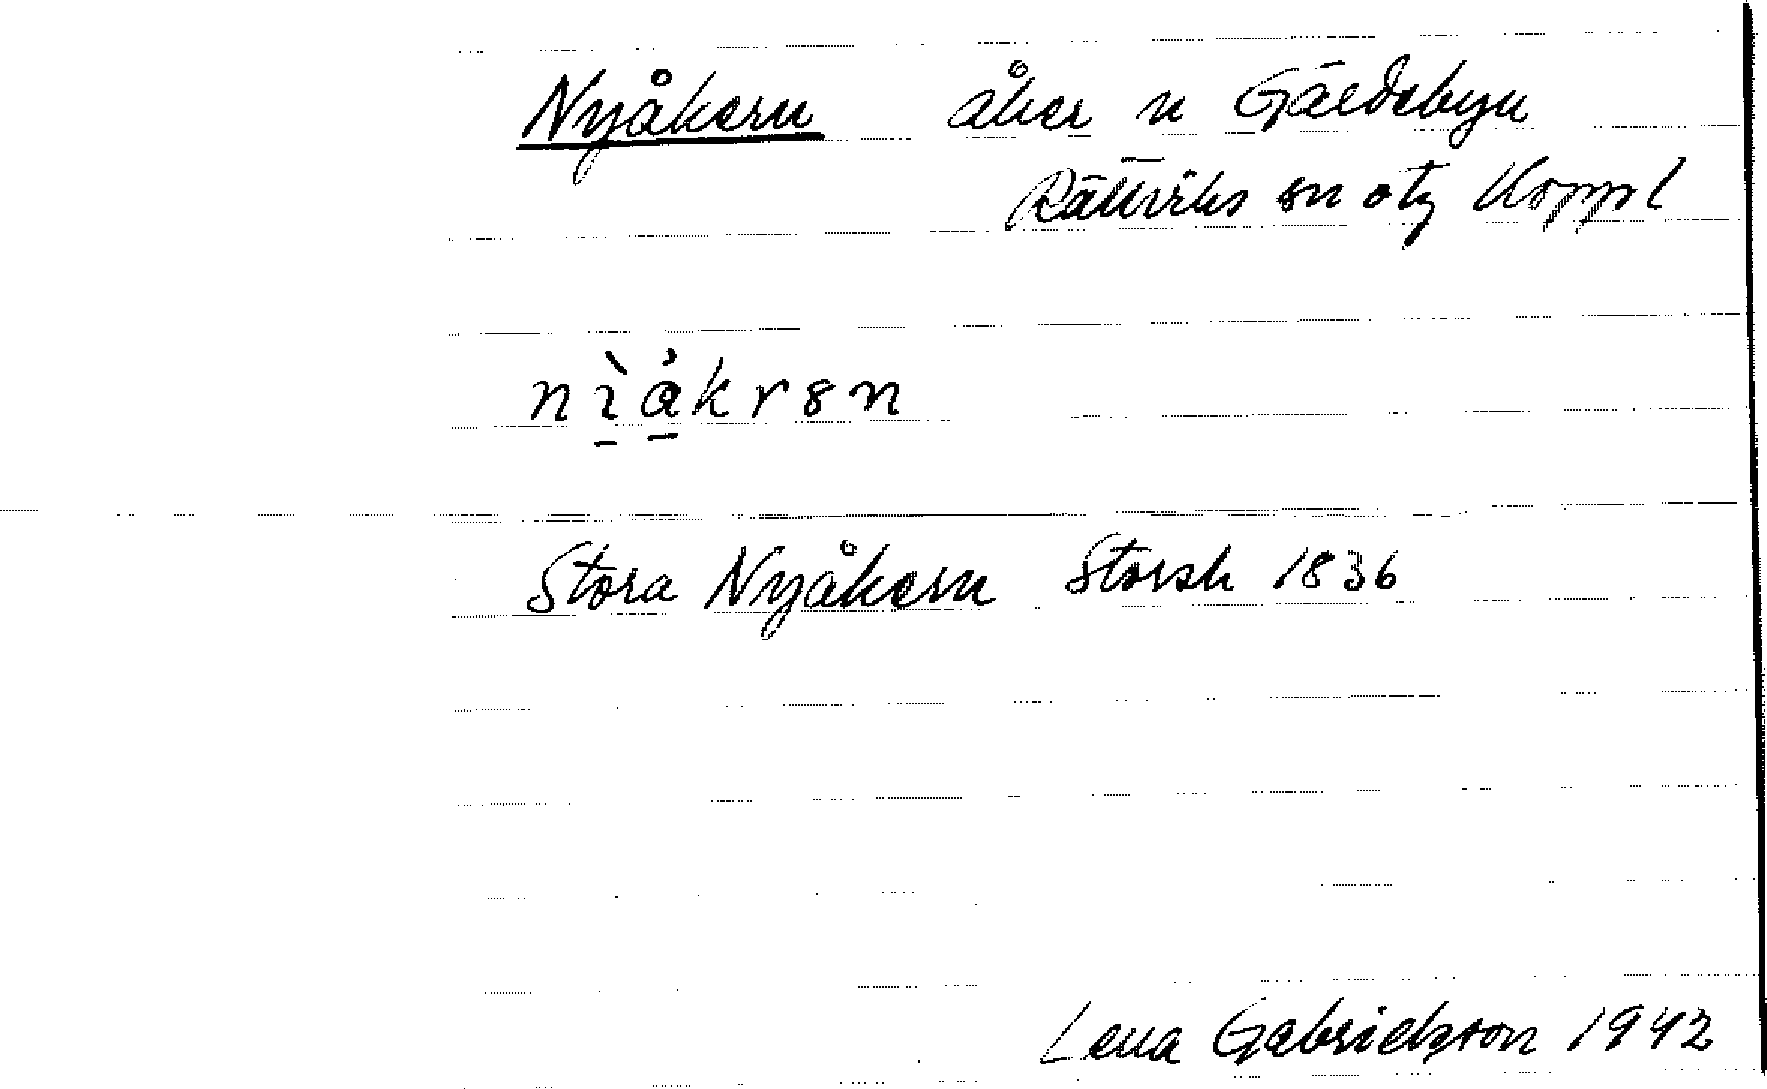 Nyåkern åker n Gärdebyn
Rättviks sn o tg Koppl
nìåkrən
Stora Nyåkern Storsk 1836
Lena Gabrielsson 1942